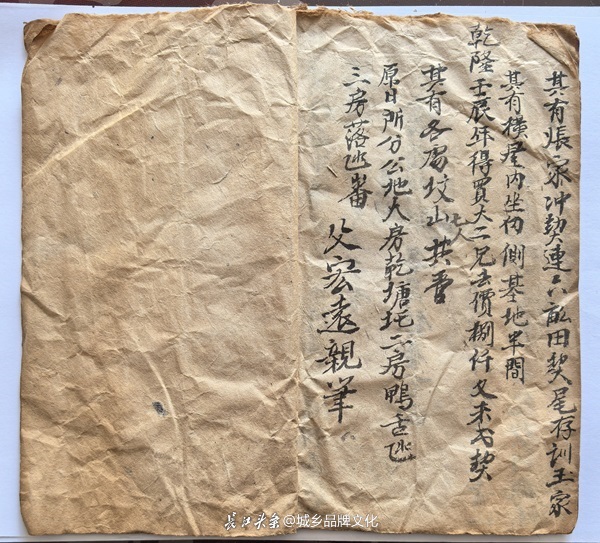 其有張家冲契連六畝田契尾存訓玉家
其有橫屋內坐初側基地半間
乾隆壬辰年得買大二兄去價捌仟文未弋契
其有各處坟山七人共膏
原日所分公地大房乾塘坵二房鴨舌坵
三房落坵番
父宏遠親筆
长江头条 @城乡品牌文化